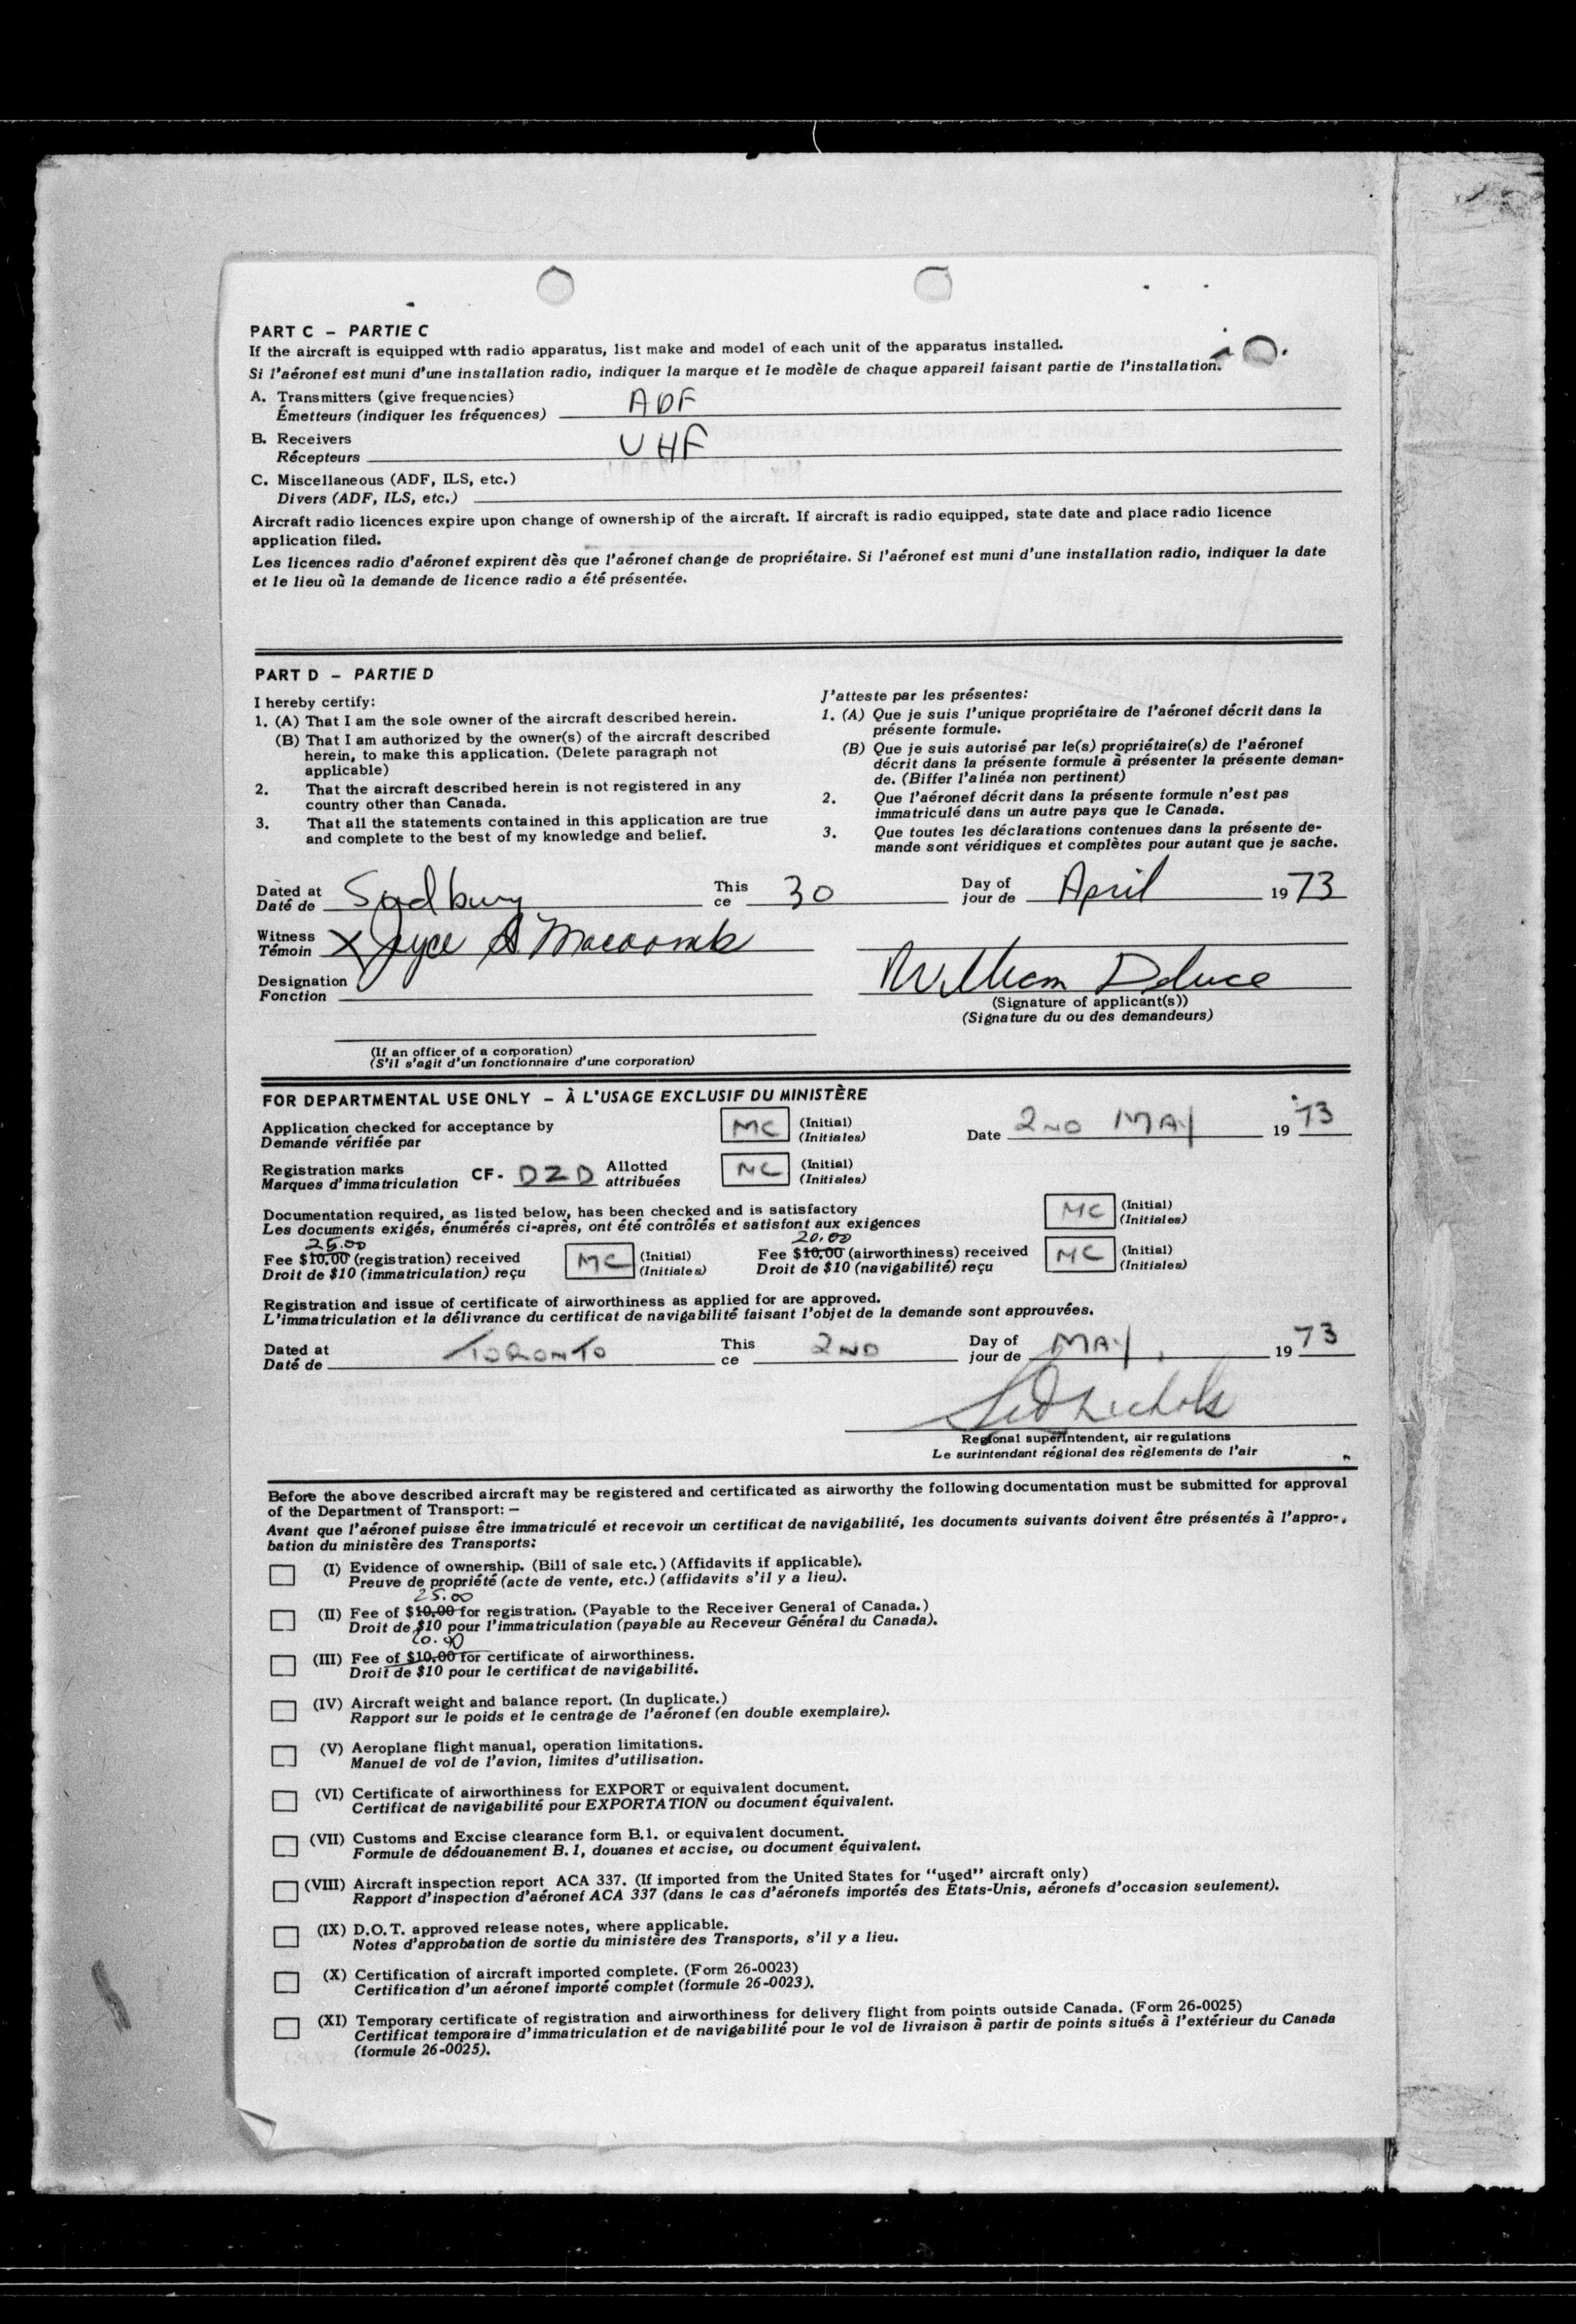 PART C – PARTIE C
If the aircraft is equipped with radio apparatus, list make and model of each unit of the apparatus installed.
Si l'aéronef est muni d'une installation radio, indiquer la marque et le modèle de chaque appareil faisant partie de l'installation.
A. Transmitters (give frequencies)
Émetteurs (indiquer les fréquences) ADF
B. Receivers
Récepteurs VHF
C. Miscellaneous (ADF, ILS, etc.)
Divers (ADF, ILS, etc.)
Aircraft radio licences expire upon change of ownership of the aircraft. If aircraft is radio equipped, state date and place radio licence
application filed.
Les licences radio d'aéronef expirent dès que l'aéronef change de propriétaire. Si l'aéronef est muni d'une installation radio, indiquer la date
et le lieu où la demande de licence radio a été présentée.
PART D – PARTIE D
I hereby certify:
1. (A) That I am the sole owner of the aircraft described herein.
(B) That I am authorized by the owner(s) of the aircraft described
herein, to make this application. (Delete paragraph not
applicable)
2. That the aircraft described herein is not registered in any
country other than Canada.
3. That all the statements contained in this application are true
and complete to the best of my knowledge and belief.
J'atteste par les présentes:
1. (A) Que je suis l'unique propriétaire de l'aéronef décrit dans la
présente formule.
(B) Que je suis autorisé par le(s) propriétaire(s) de l'aéronef
décrit dans la présente formule à présenter la présente deman-
de. (Biffer l'alinéa non pertinent)
2. Que l'aéronef décrit dans la présente formule n'est pas
immatriculé dans un autre pays que le Canada.
3. Que toutes les déclarations contenues dans la présente de-
mande sont véridiques et complètes pour autant que je sache.
Dated at Sudbury This 30 Day of April 1973
Daté de ce jour de
Witness X Joyce A Macoomb
Témoin
Designation William Deluce
Fonction
(Signature of applicant(s))
(Signature du ou des demandeurs)
(If an officer of a corporation)
(S'il s'agit d'un fonctionnaire d'une corporation)
FOR DEPARTMENTAL USE ONLY – À L'USAGE EXCLUSIF DU MINISTÈRE
Application checked for acceptance by MC (Initial) Date 2ND MAY 1973
Demande vérifiée par (Initiales)
Registration marks CF- DZD Allotted MC (Initial)
Marques d'immatriculation attribuées (Initiales)
Documentation required, as listed below, has been checked and is satisfactory MC (Initial)
Les documents exigés, énumérés ci-après, ont été contrôlés et satisfont aux exigences (Initiales)
25.00 20.00
Fee $10.00 (registration) received MC (Initial) Fee $10.00 (airworthiness) received MC (Initial)
Droit de $10 (immatriculation) reçu (Initiales) Droit de $10 (navigabilité) reçu (Initiales)
Registration and issue of certificate of airworthiness as applied for are approved.
L'immatriculation et la délivrance du certificat de navigabilité faisant l'objet de la demande sont approuvées.
Dated at TORONTO This 2ND Day of MAY 1973
Daté de ce jour de
Regional superintendent, air regulations
Le surintendant régional des règlements de l'air
Before the above described aircraft may be registered and certificated as airworthy the following documentation must be submitted for approval
of the Department of Transport: –
Avant que l'aéronef puisse être immatriculé et recevoir un certificat de navigabilité, les documents suivants doivent être présentés à l'appro-
bation du ministère des Transports:
(I) Evidence of ownership. (Bill of sale etc.) (Affidavits if applicable).
Preuve de propriété (acte de vente, etc.) (affidavits s'il y a lieu).
25.00
(II) Fee of $10.00 for registration. (Payable to the Receiver General of Canada.)
Droit de $10 pour l'immatriculation (payable au Receveur Général du Canada).
20.00
(III) Fee of $10.00 for certificate of airworthiness.
Droit de $10 pour le certificat de navigabilité.
(IV) Aircraft weight and balance report. (In duplicate.)
Rapport sur le poids et le centrage de l'aéronef (en double exemplaire).
(V) Aeroplane flight manual, operation limitations.
Manuel de vol de l'avion, limites d'utilisation.
(VI) Certificate of airworthiness for EXPORT or equivalent document.
Certificat de navigabilité pour EXPORTATION ou document équivalent.
(VII) Customs and Excise clearance form B.1. or equivalent document.
Formule de dédouanement B. 1, douanes et accise, ou document équivalent.
(VIII) Aircraft inspection report ACA 337. (If imported from the United States for "used" aircraft only)
Rapport d'inspection d'aéronef ACA 337 (dans le cas d'aéronefs importés des États-Unis, aéronefs d'occasion seulement).
(IX) D.O.T. approved release notes, where applicable.
Notes d'approbation de sortie du ministère des Transports, s'il y a lieu.
(X) Certification of aircraft imported complete. (Form 26-0023)
Certification d'un aéronef importé complet (formule 26-0023).
(XI) Temporary certificate of registration and airworthiness for delivery flight from points outside Canada. (Form 26-0025)
Certificat temporaire d'immatriculation et de navigabilité pour le vol de livraison à partir de points situés à l'extérieur du Canada
(formule 26-0025).